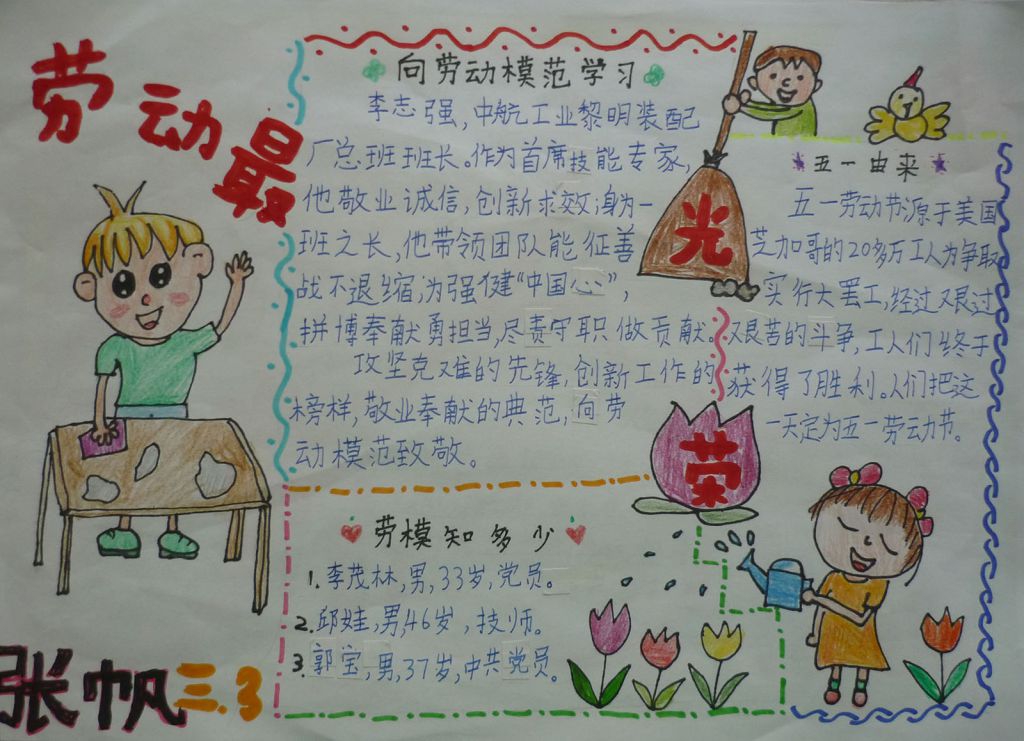 劳动最
光
荣
向劳动模范学习
李志强,中航工业黎明装配
厂总班班长。作为首席技能专家,
他敬业诚信,创新求效;身为一
班之长,他带领团队能征善
战不退缩;为强健“中国心”,
拼博奉献勇担当,尽责守职做贡献。
攻坚克难的先锋,创新工作的
榜样,敬业奉献的典范,向劳
动模范致敬。
五一由来
五一劳动节源于美国
芝加哥的20多万工人为争取
实行大罢工,经过又艰过
又艰苦的斗争,工人们终于
获得了胜利。人们把这
一天定为五一劳动节。
劳模知多少
1.李茂林,男,33岁,党员。
2.邱娃,男,46岁,技师。
3.郭宝,男,37岁,中共党员。
张帆三.3